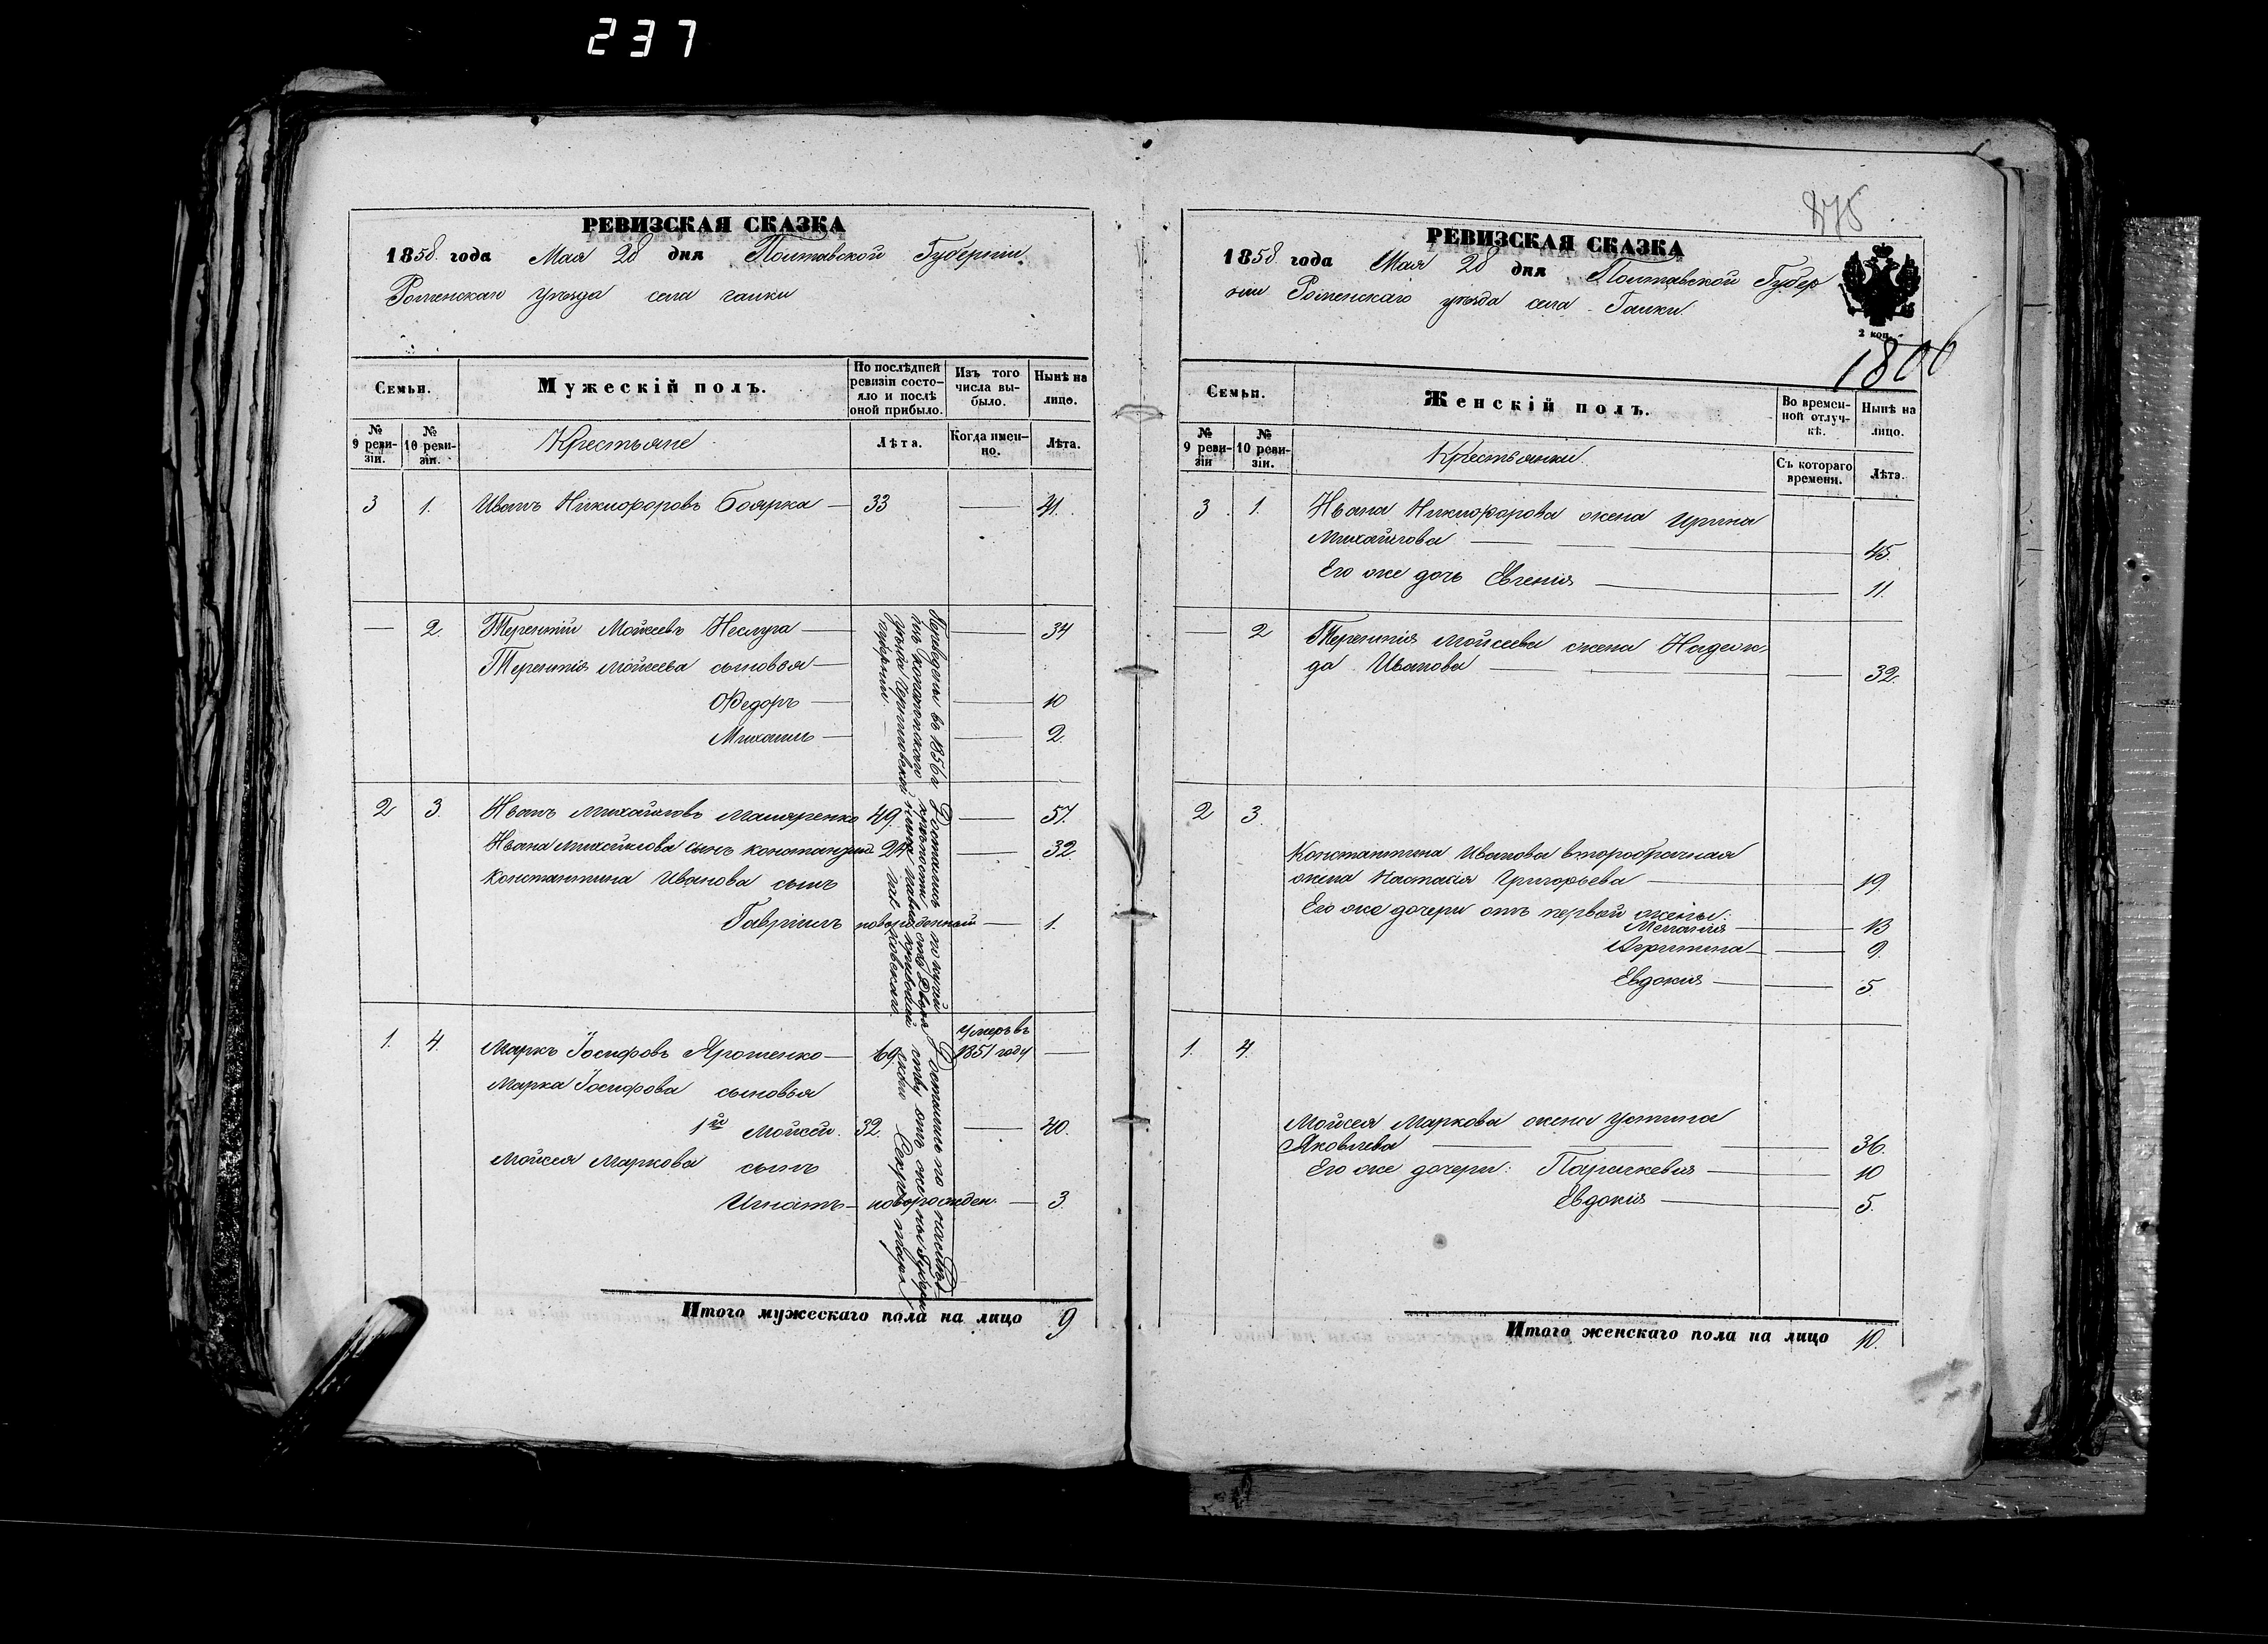 237
РЕВИЗСКАЯ СКАЗКА
1858 года Мая 28 дня Полтавской Губерніи
Роменскаго уѣзда села Галки
Семьи.
Мужескій полъ.
По послѣдней ревизіи состояло и послѣ оной прибыло.
Изъ того числа выбыло.
Нынѣ на лицо.
№ 9 ревизіи.
№ 10 ревизіи.
Крестьяне
Лѣта.
Когда именно.
Лѣта.
3 1. Иванъ Никифоровъ Боярка — 33 — 41.
— 2. Терентій Мойсеевъ Неслуга — — 34
Терентія Мойсеева сыновья —
Федоръ — — 10
Михаилъ — — 2.
Переведены въ 1856 г
изъ Конотопского
уѣзда Черниговской
губерніи. —
2 3. Иванъ Михайловъ Маляренко 49. — 57.
Ивана Михайлова сынъ Константинъ 24 — 32
Константина Иванова сынъ
Гавріилъ новорожденный — 1.
Достались по купчей
крѣпости, отъ
1. 4. Маркъ Іосифовъ Ярошенко — 69 Умеръ въ 1851 году —
Марка Іосифова сыновья
1й Мойсей. 32. — 40.
Мойсея Маркова сынъ
Игнатъ — новорожден. — 3.
Достались по наслѣд
ству отъ
Итого мужескаго пола на лицо 9
875
РЕВИЗСКАЯ СКАЗКА
1858 года Мая 28 дня Полтавской Губер
ніи Роменскаго уѣзда села Галки.
2 коп.
1806
Семьи.
Женскій полъ.
Во временной отлучкѣ.
Нынѣ на лицо.
№ 9 ревизіи
№ 10 ревизіи.
Крестьянки.
Съ котораго времени.
Лѣта.
3. 1. Ивана Никифорова жена Ирина
Михайлова — — — 45.
Его же дочь Евгенія — — 11.
— 2 Терентія Мойсеева жена Надеж
да Иванова — — — 32.
2 3.
Константина Иванова второбрачная
жена Настасія Григорьева — 19.
Его же дочери отъ первой жены:
Меланія — — 13
— — 9.
Евдокія — — 5.
1. 4.
Мойсея Маркова жена Устина
Яковлева — — 36.
Его же дочери: Параскевія — — 10
Евдокія — — 5.
Итого женскаго пола на лицо 10.